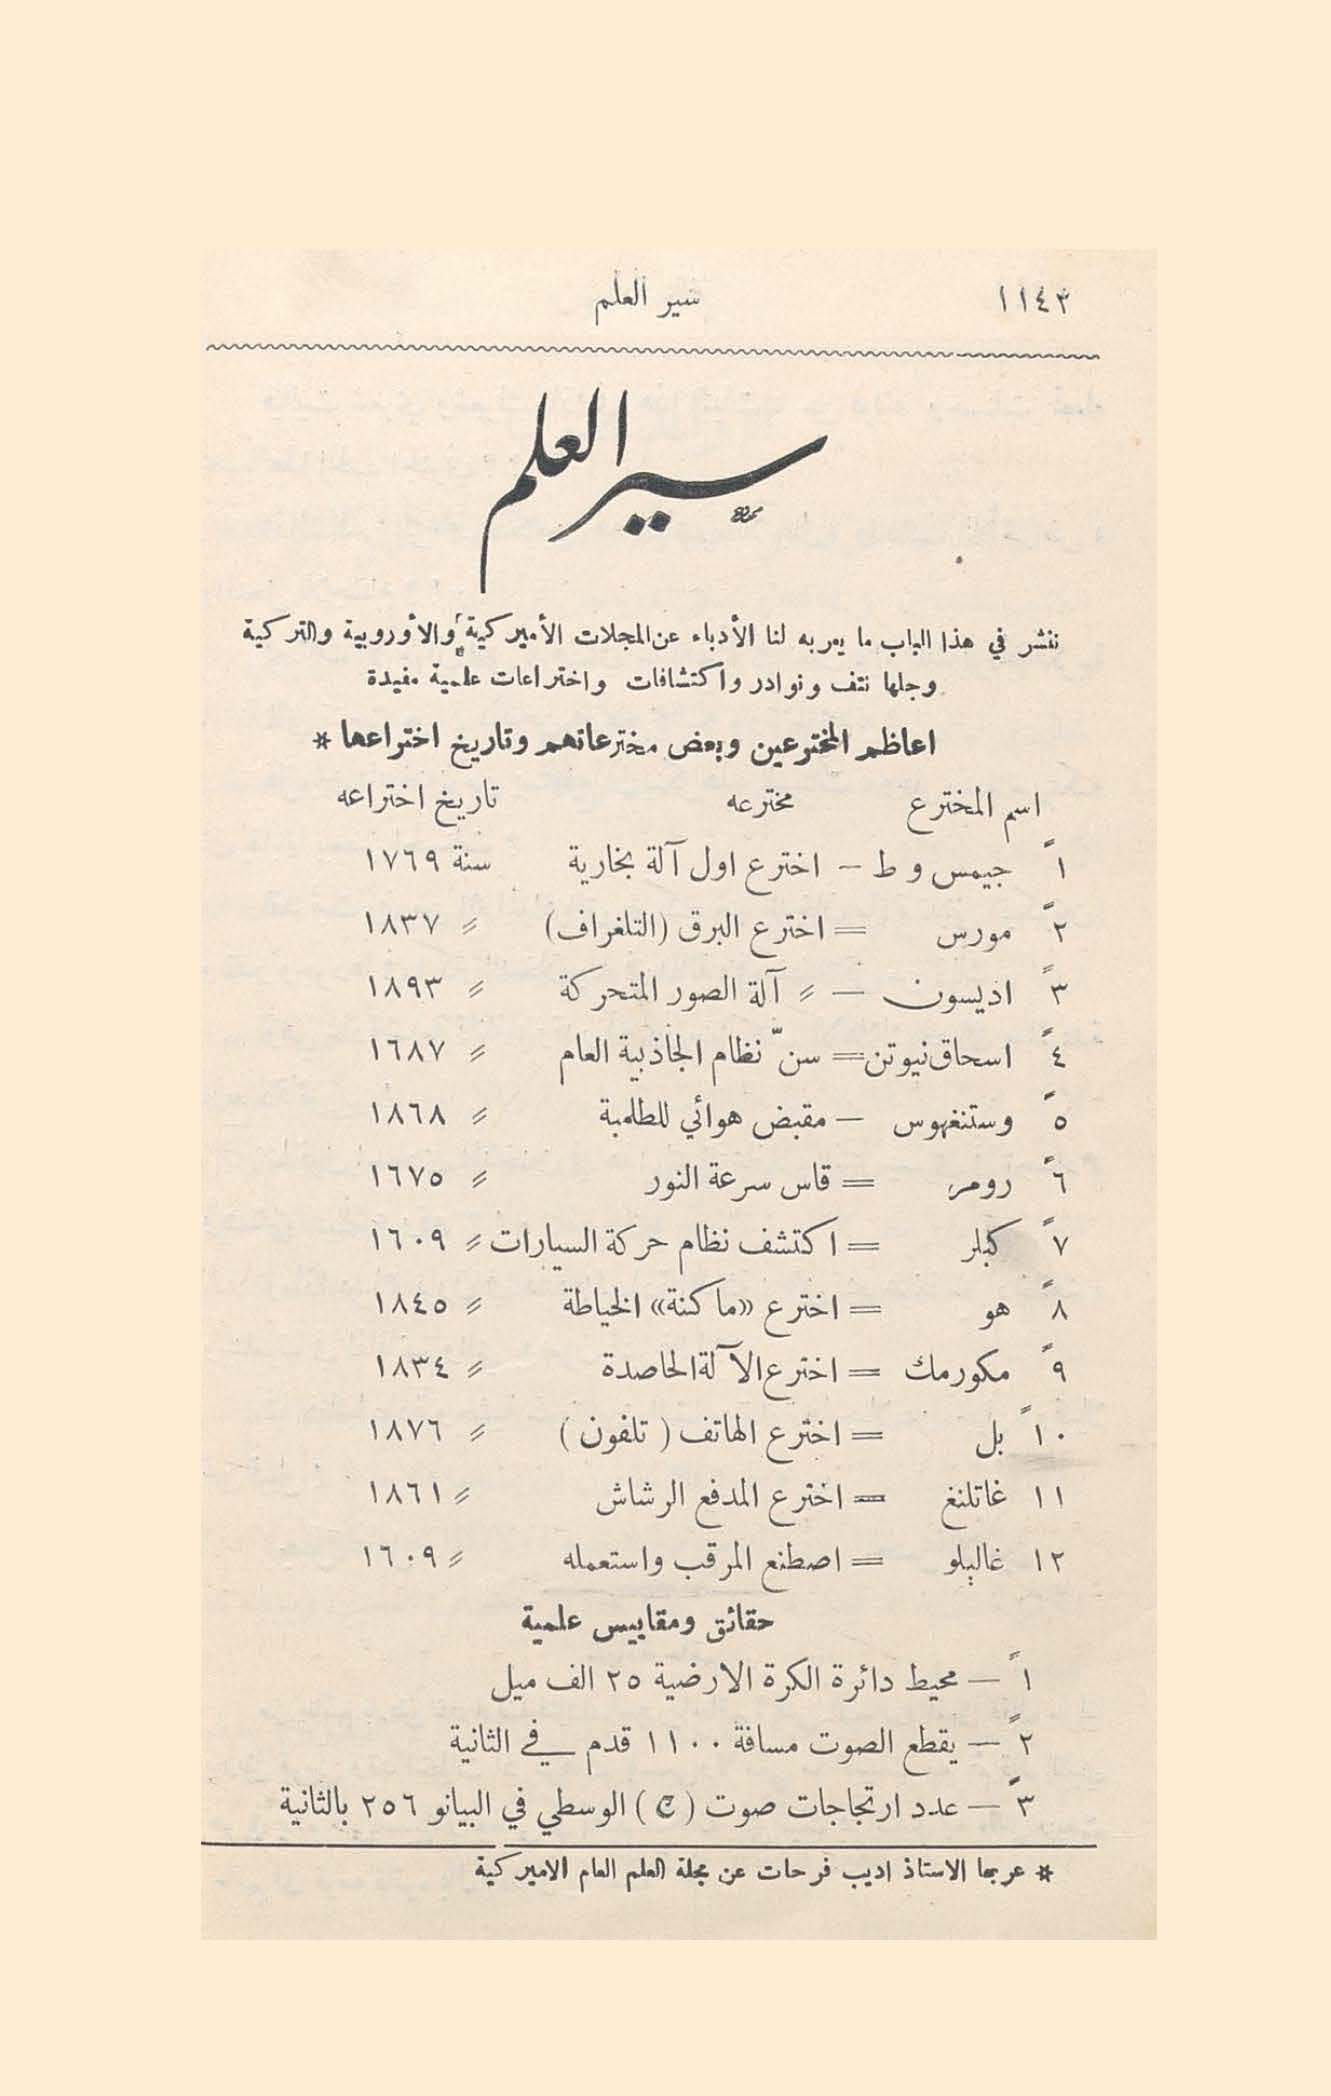 ١١٤٣ سير العلم
سير العلم
ننشر في هذا الباب ما يعربه لنا الأدباء عن المجلات الأميركية والأوروبية والتركية
وجلها نتف ونوادر واكتشافات واختراعات علمية مفيدة
اعاظم المخترعين وبعض مخترعاتهم وتاريخ اختراعها *
اسم المخترع مخترعه تاريخ اختراعه
١ً جيمس وط – اخترع اول آلة بخارية سنة ١٧٦٩
٢ً مورس = اخترع البرق (التلغراف) 〃 ١٨٣٧
٣ً اديسون – 〃 آلة الصور المتحركة 〃 ١٨٩٣
٤ً اسحاق نيوتن = سنّ نظام الجاذبية العام 〃 ١٦٨٧
٥ً وستنغهوس – مقبض هوائي للطلمبة 〃 ١٨٦٨
٦ً رومر = قاس سرعة النور 〃 ١٦٧٥
٧ً كبلر = اكتشف نظام حركة السيارات 〃 ١٦٠٩
٨ً هو = اخترع «ماكنة» الخياطة 〃 ١٨٤٥
٩ً مكورمك = اخترع الآلة الحاصدة 〃 ١٨٣٤
١٠ً بل = اخترع الهاتف (تلفون) 〃 ١٨٧٦
١١ غاتلنغ = اخترع المدفع الرشاش 〃 ١٨٦١
١٢ غاليلو = اصطنع المرقب واستعمله 〃 ١٦٠٩
حقائق ومقاييس علمية
١ً – محيط دائرة الكرة الارضية ٢٥ الف ميل
٢ً – يقطع الصوت مسافة ١١٠٠ قدم في الثانية
٣ً – عدد ارتجاجات صوت (C) الوسطي في البيانو ٢٥٦ بالثانية
* عربها الاستاذ اديب فرحات عن مجلة العلم العام الاميركية